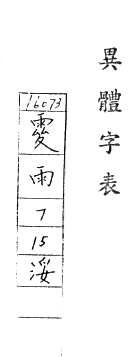 異體字表
16073
䨘
雨
7
15
浽